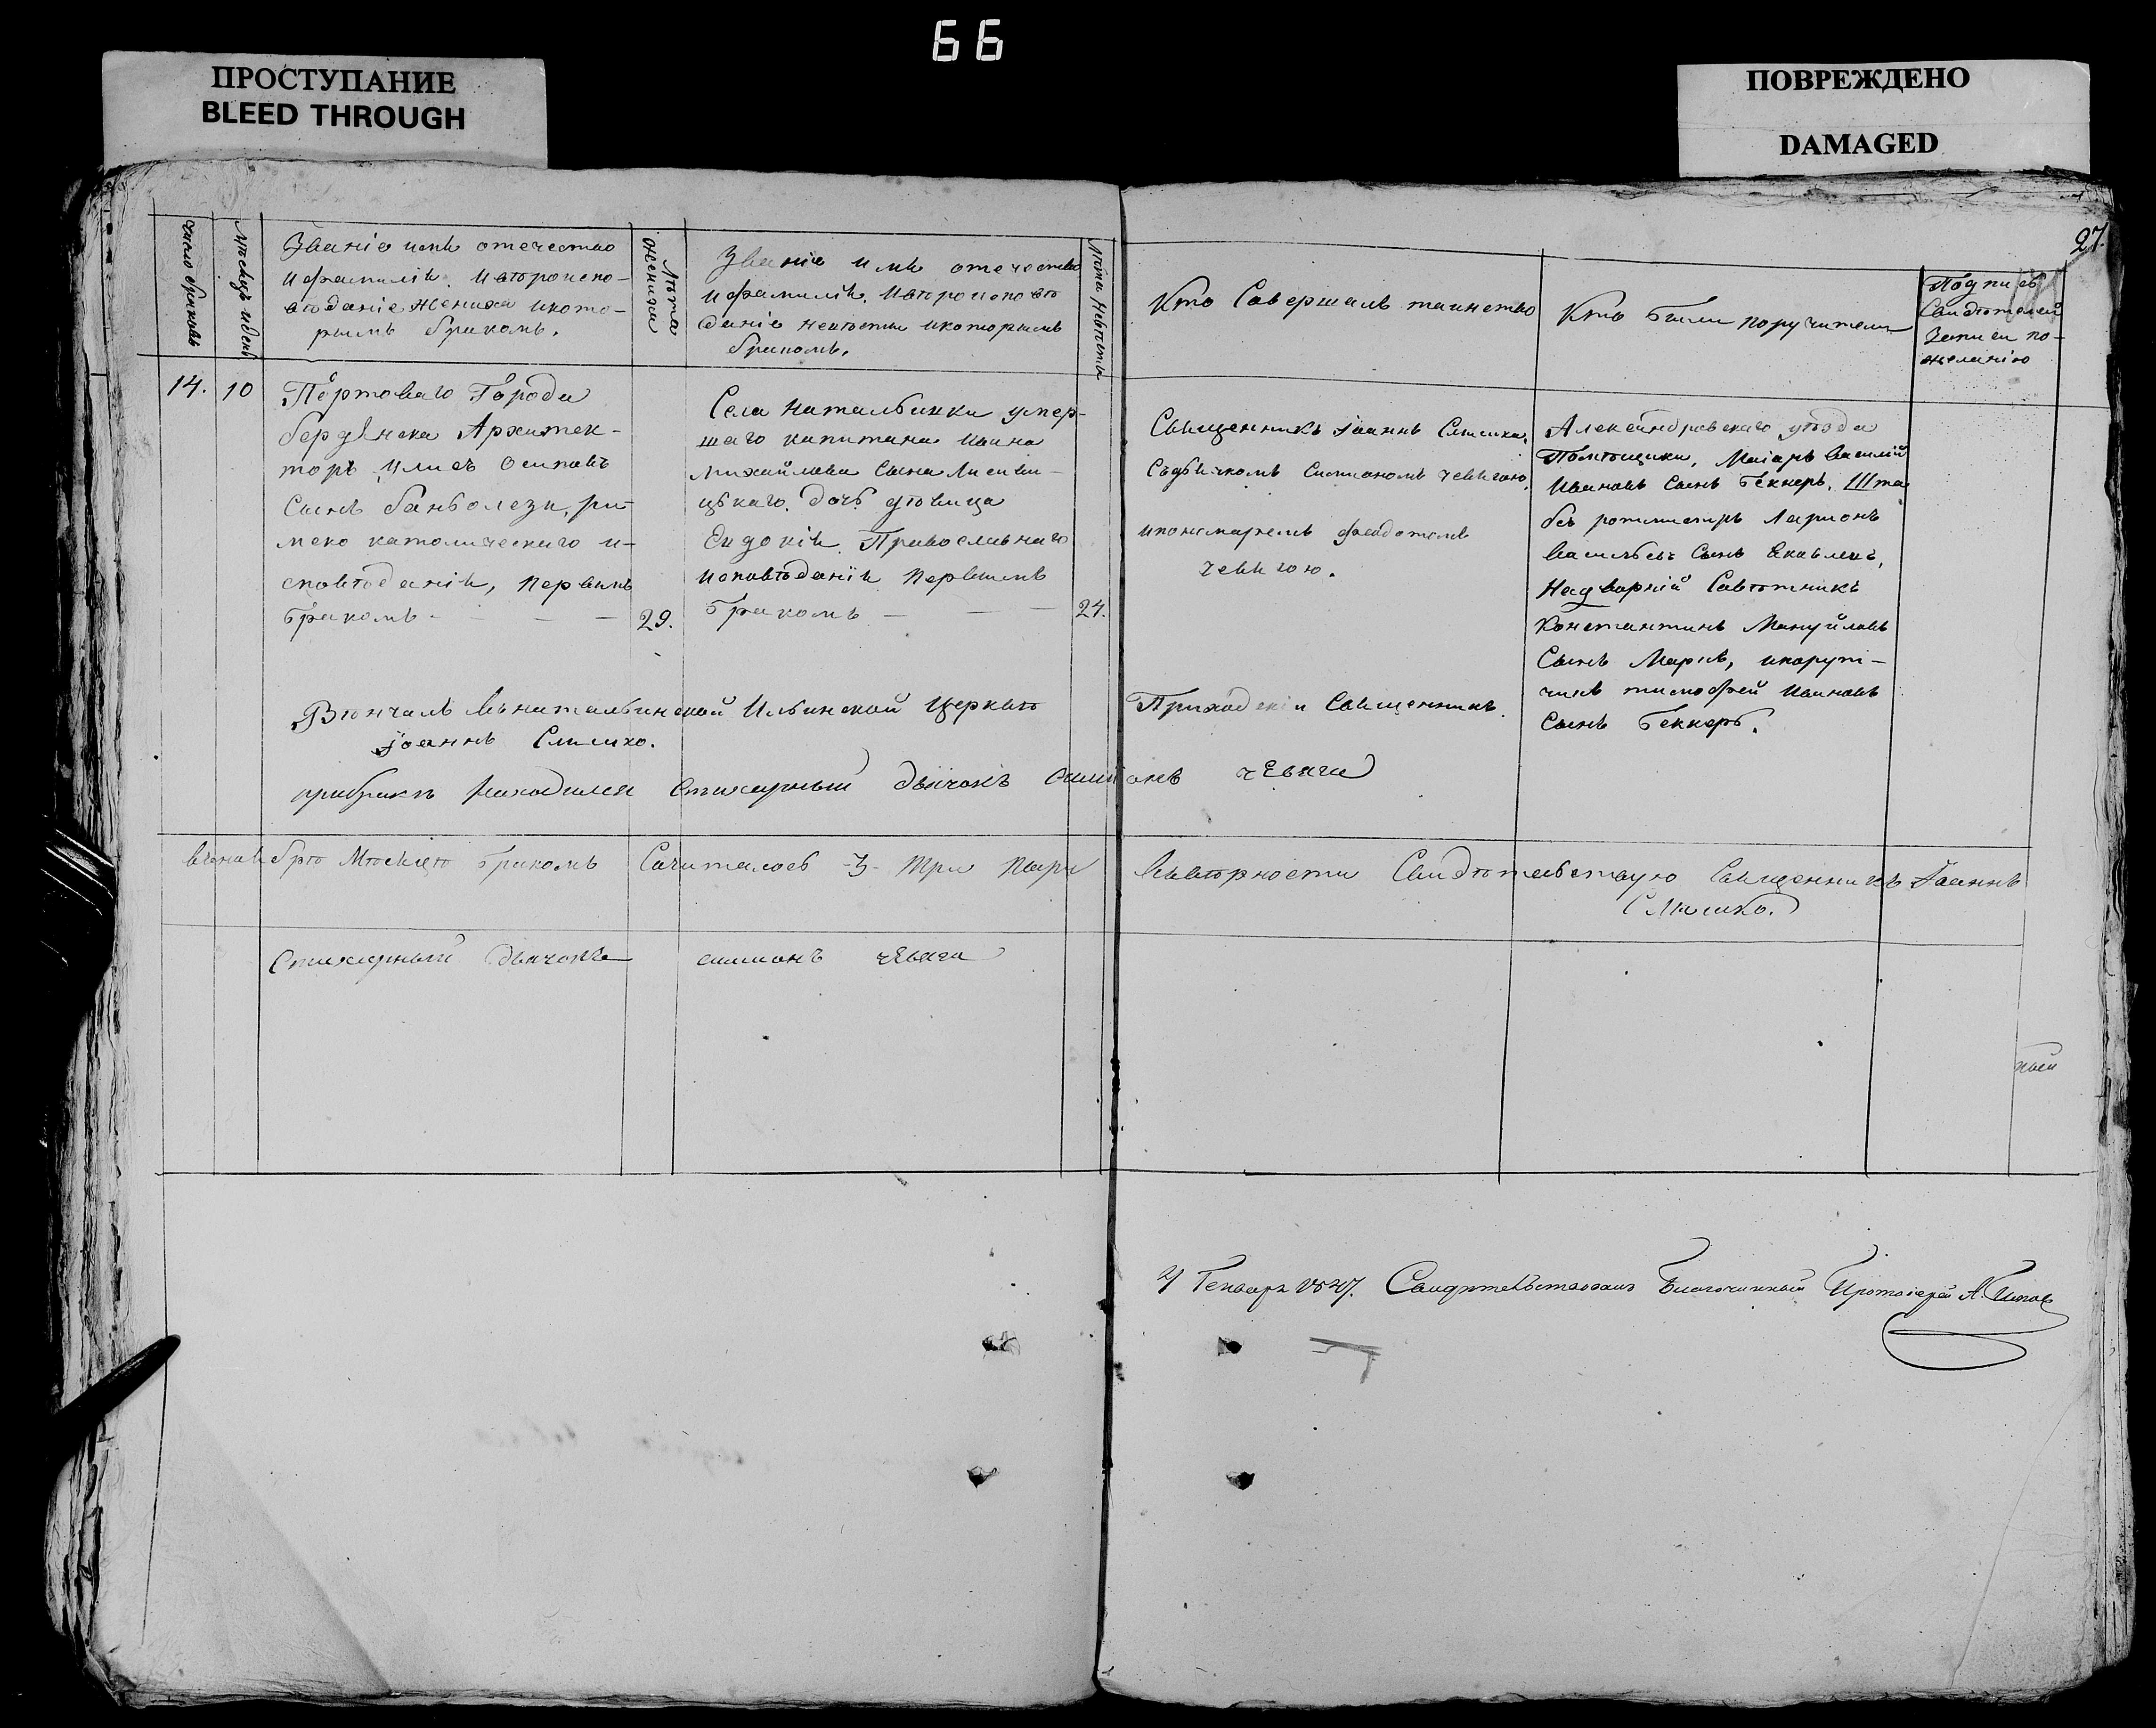 66
ПРОСТУПАНИЕ
BLEED THROUGH
ПОВРЕЖДЕНО
DAMAGED
27.
число браковъ
Мѣсяцъ и день
Званіе имя отечество
и фамилія. и вѣроиспо-
вѣданіе жениха и кото-
рымъ бракомъ.
Лѣта
жениха
Званіе имя отечество
и фамилія. и вѣроисповѣ
даніе невѣсты и которымъ
бракомъ.
Лѣта невѣсты
Кто Совершалъ таинство
Кто Были поручители
Подписъ
Свидѣтелей
Записи по-
желанію
14.
10
Портоваго Города
бердянска Архитек-
торъ, Осиповъ
Сынъ ри-
мско католическаго и-
сповѣданія, первымъ
бракомъ - - - -
29.
Села Натальинки умер-
шаго капитана Ивана
Михайлова Сына Лисеви-
цькаго. дочь дѣвица
Евдокія. Православнаго
исповѣданія первымъ
бракомъ - - -
24.
Священникъ Іоаннъ
Съ дьячкомъ Симіономъ Чевагою,
и пономаремъ Феодотомъ
Чевагою.
Александровскаго уѣзда
Помѣщики, Маіоръ Василій
Ивановъ Сынъ Беккеръ, Шта
бсъ ротмистръ Ларіонъ
Васильевъ Сынъ Яковлевъ,
Надворній Совѣтникъ
Константинъ Мануйловъ
Сынъ и поручи-
чикъ тимофей Ивановъ
Сынъ Беккеръ.
Вѣнчалъ въ натальинской Ильинской Церквѣ Приходскій Священникъ
Іоаннъ
при бракѣ находился Стихарный дьячокъ симионъ чЕвага
брѣ Мѣсяцѣ бракомъ Сочиталось -3- три пары
Въ вѣрности Свидѣтельствую Священникъ Іоаннъ
Стихарный дьячокъ симионъ чЕвага
Генваря 1847. Свидѣтельствовалъ Благочинный Протоіерей А.